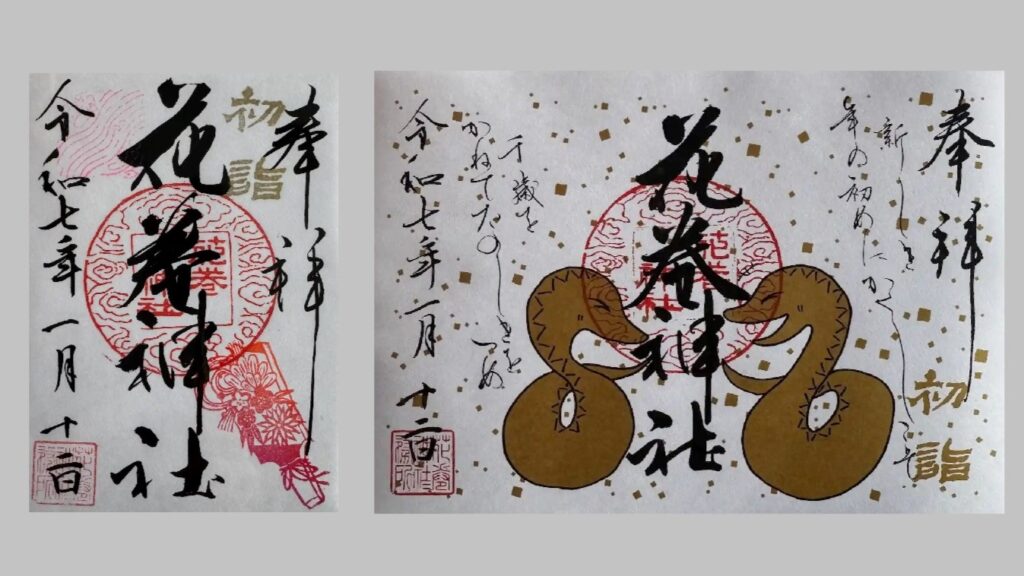 奉拝
初詣
花巻神社
花巻神社
令和七年一月十二日
奉拝
初詣
新しき
年の初めにかくしこそ
花巻神社
花巻神社
千歳を
かねてたのしきをつめ
令和七年一月十二日